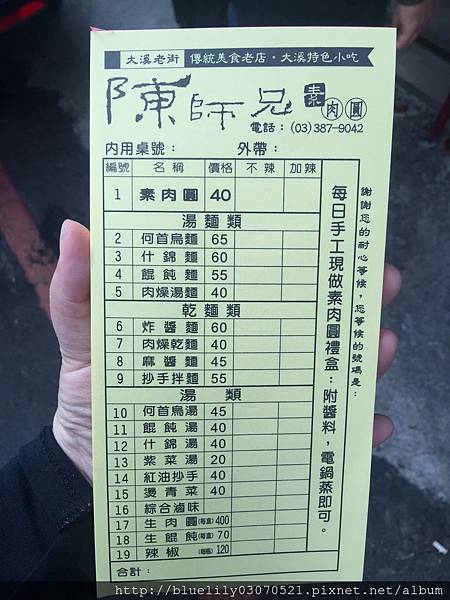 大溪老街 傳統美食老店・大溪特色小吃
陳師兄 素肉圓
電話：(03)387-9042
內用桌號： 外帶：
編號 名稱 價格 不辣 加辣
1 素肉圓 40
湯麵類
2 何首烏麵 65
3 什錦麵 60
4 餛飩麵 55
5 肉燥湯麵 40
乾麵類
6 炸醬麵 60
7 肉燥乾麵 40
8 麻醬麵 45
9 抄手拌麵 55
湯類
10 何首烏湯 45
11 餛飩湯 40
12 什錦湯 40
13 紫菜湯 20
14 紅油抄手 40
15 燙青菜 40
16 綜合滷味
17 生肉圓(每盒) 400
18 生餛飩(每盒) 70
19 辣椒 (每瓶) 120
合計：
每日手工現做素肉圓禮盒：附醬料，電鍋蒸即可。
謝謝您的耐心等候，您等候的號碼是：
http://bluelily03070521.pixnet.net/album